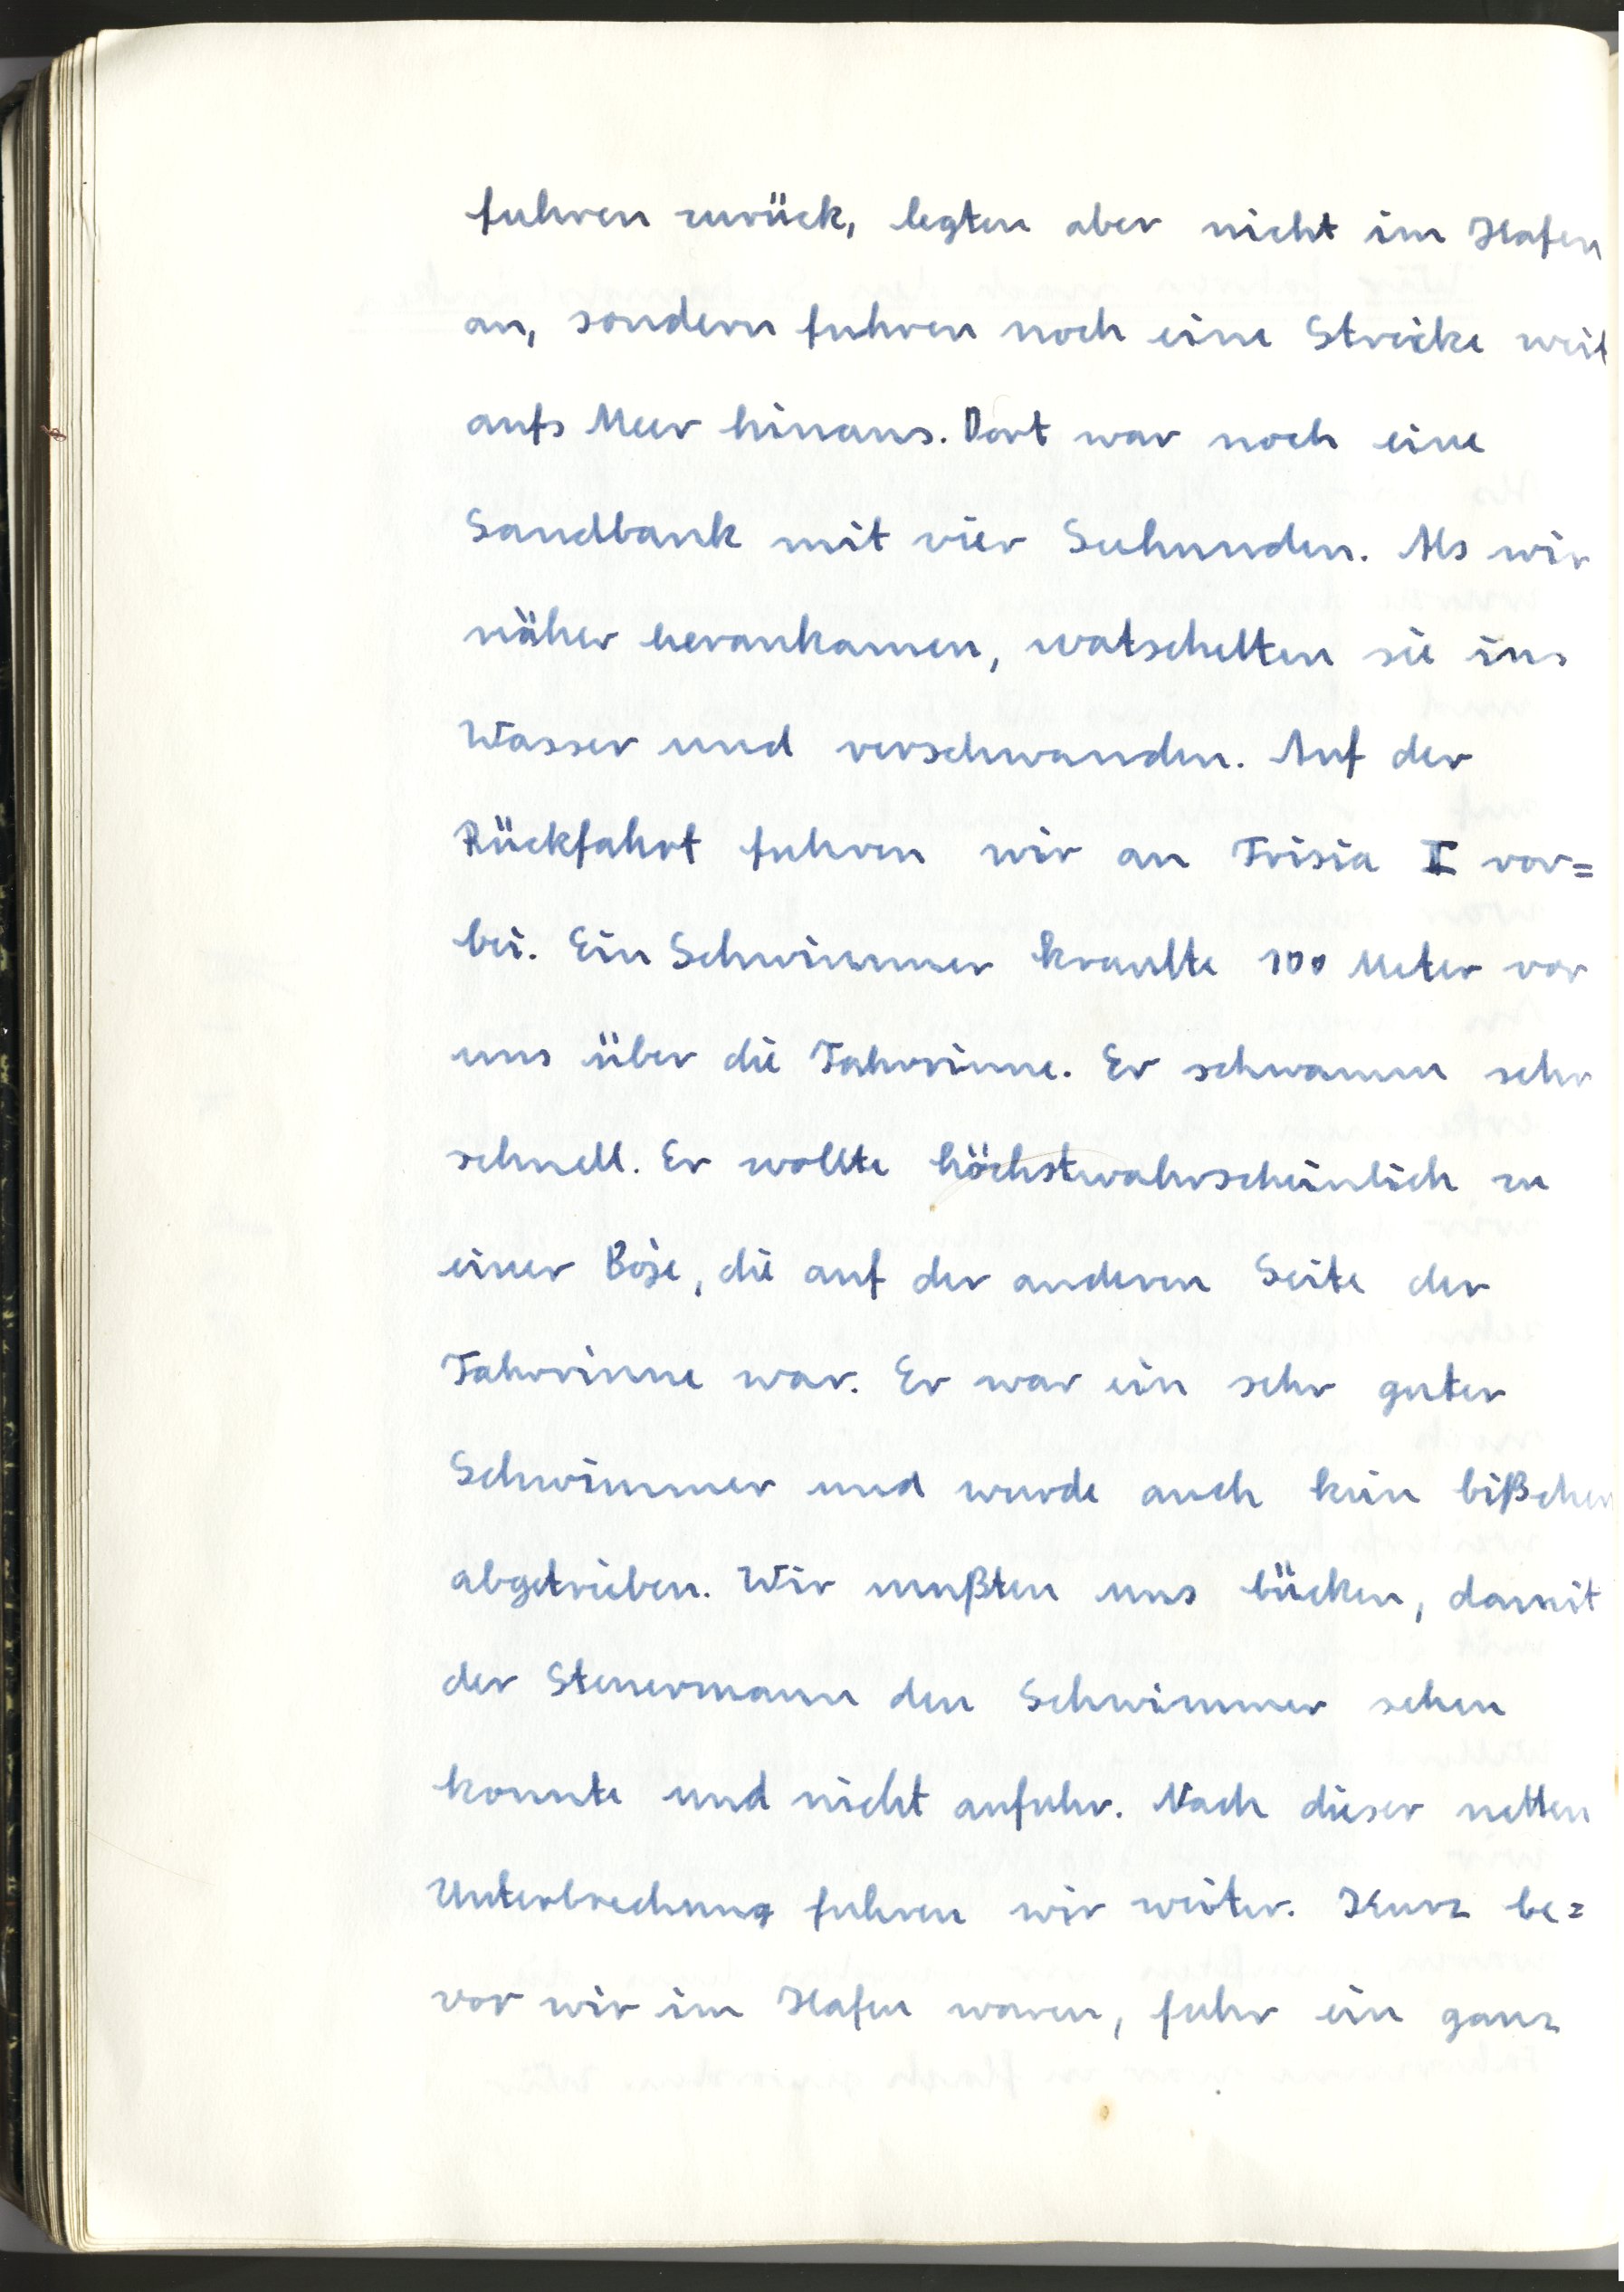 fuhren zurück, legten aber nicht im Hafen
an, sondern fuhren noch eine Strecke weit
aufs Meer hinaus. Dort war noch eine
Sandbank mit vier Seehunden. Als wir
näher herankamen, watschelten sie ins
Wasser und verschwanden. Auf der
Rückfahrt fuhren wir an Frisia II vor=
bei. Ein Schwimmer kraulte 100 Meter vor
uns über die Fahrrinne. Er schwamm sehr
schnell. Er wollte höchstwahrscheinlich zu
einer Boje, die auf der anderen Seite der
Fahrrinne war. Er war ein sehr guter
Schwimmer und wurde auch kein bißchen
abgetrieben. Wir mußten uns bücken, damit
der Steuermann den Schwimmer sehen
konnte und nicht anfuhr. Nach dieser netten
Unterbrechung fuhren wir weiter. Kurz be=
vor wir im Hafen waren, fuhr ein ganz